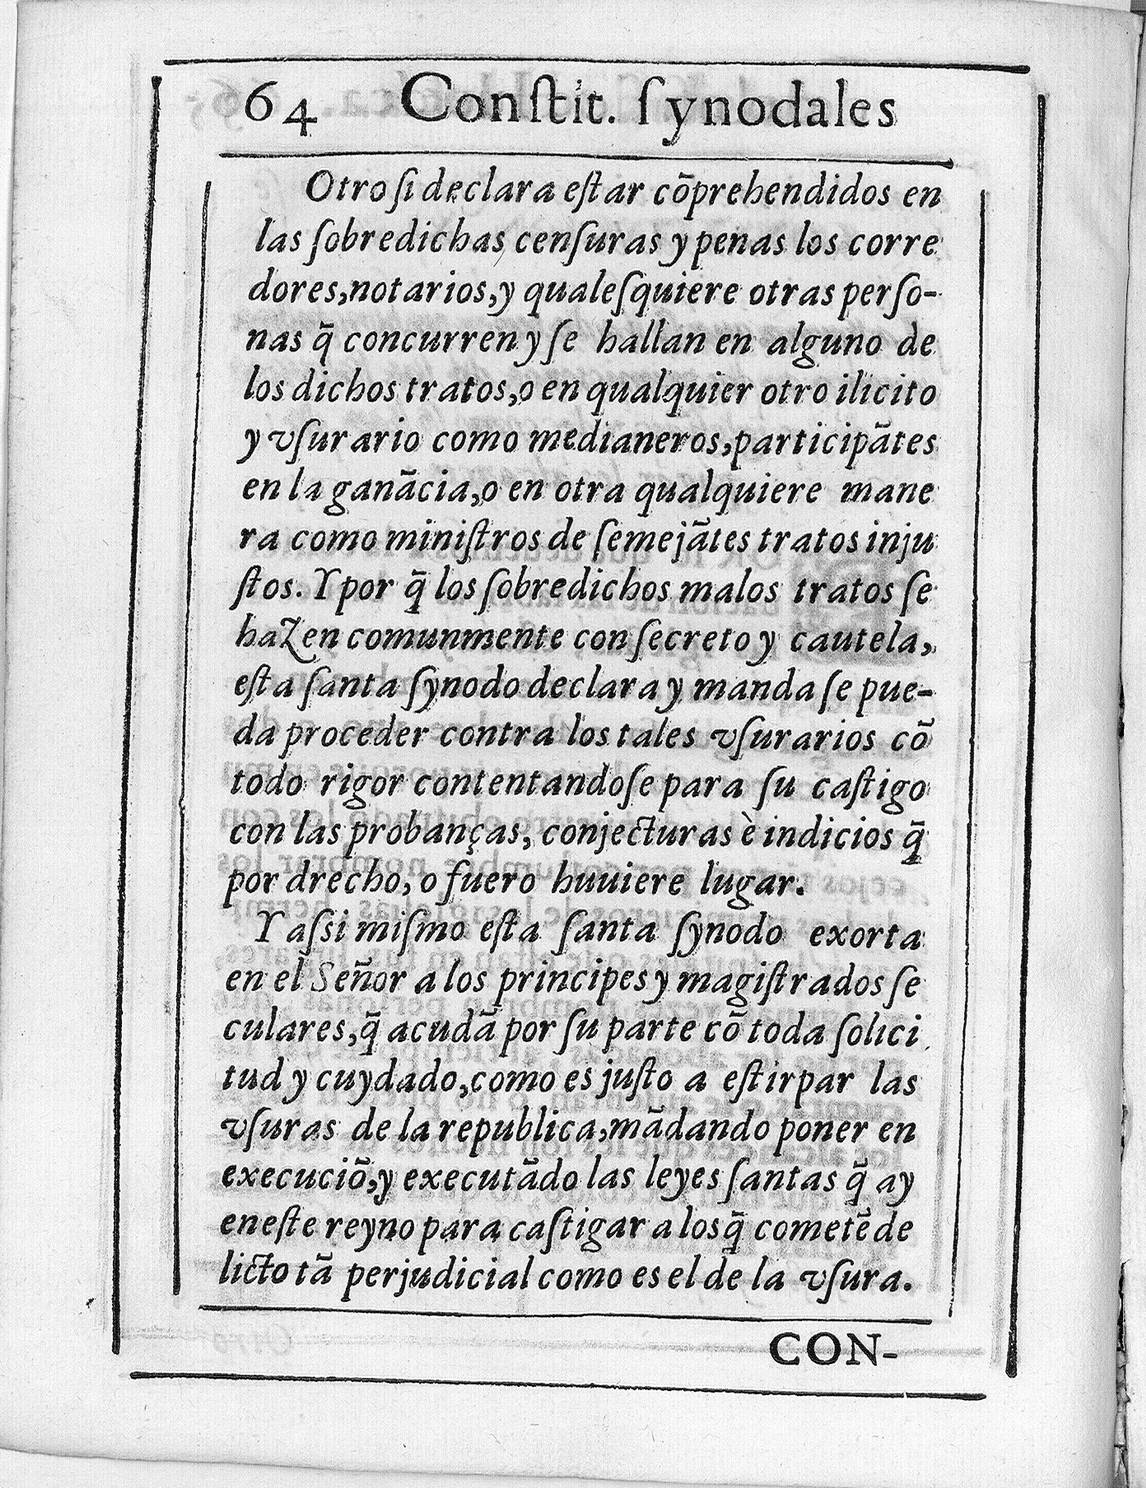 64 Conſtit. ſynodales
Otro ſi declara eſtar cõprehendidos en
las ſobredichas cenſuras y penas los corre
dores,notarios,y qualeſquiere otras perſo-
nas q̃ concurren y ſe hallan en alguno de
los dichos tratos,o en qualquier otro ilicito
y vſurario como medianeros,participãtes
en la ganãcia,o en otra qualquiere mane
ra como miniſtros de ſemejãtes tratos inju
ſtos. Y por q̃ los ſobredichos malos tratos ſe
hazen comunmente con ſecreto y cautela,
eſta ſanta ſynodo declara y manda ſe pue-
da proceder contra los tales vſurarios cõ
todo rigor contentandoſe para ſu caſtigo
con las probanças, conjecturas è indicios q̃
por drecho, o fuero huuiere lugar.
Y aſsi miſmo eſta ſanta ſynodo exorta
en el Señor a los principes y magiſtrados ſe
culares,q̃ acudã por ſu parte cõ toda ſolici
tud y cuydado,como es juſto a eſtirpar las
vſuras de la republica,mãdando poner en
execuciõ,y executãdo las leyes ſantas q̃ ay
eneſte reyno para caſtigar a los q̃ cometẽ de
licto tã perjudicial como es el de la vſura.
CON-